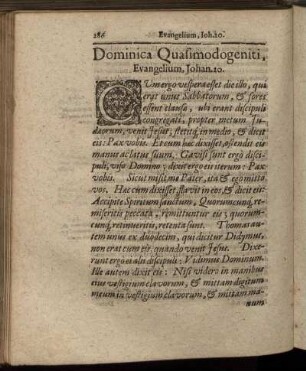 286 Evangelium, Ioh. 20.
Dominica Quasimodogeniti,
Evangelium, Johan. 20.
CUm ergo vespera esset die illo, qui
erat unus Sabbatorum, & fores
essent clausæ, ubi erant discipuli
congregati, propter metum Ju-
dæorum, venit Jesus, stetitq; in medio, & dicit
eis: Pax vobis. Et cum hæc dixisset, ostendit eis
manus ac latus suum. Gavisi sunt ergo disci-
puli, viso Domino, dixit ergo eis iterum: Pax
vobis. Sicut misit me Pater, ita & ego mitto
vos. Hæc cum dixisset, flavit in eos, & dicit eis:
Accipite Spiritum sanctum, Quorumcunq;
remiseritis peccata, remittuntur eis, quorum-
cunq; retinueritis, retenta sunt. Thomas au-
tem unus ex duodecim, qui dicitur Didymus,
non erat cum eis, quando venit Jesus. Dixe-
runt ergo ei alii discipuli: Vidimus Dominum.
Ille autem dixit eis: Nisi videro in manibus
eius vestigium clavorum, & mittam digitum
meum in vestigium clavorum, & mittam ma-
num